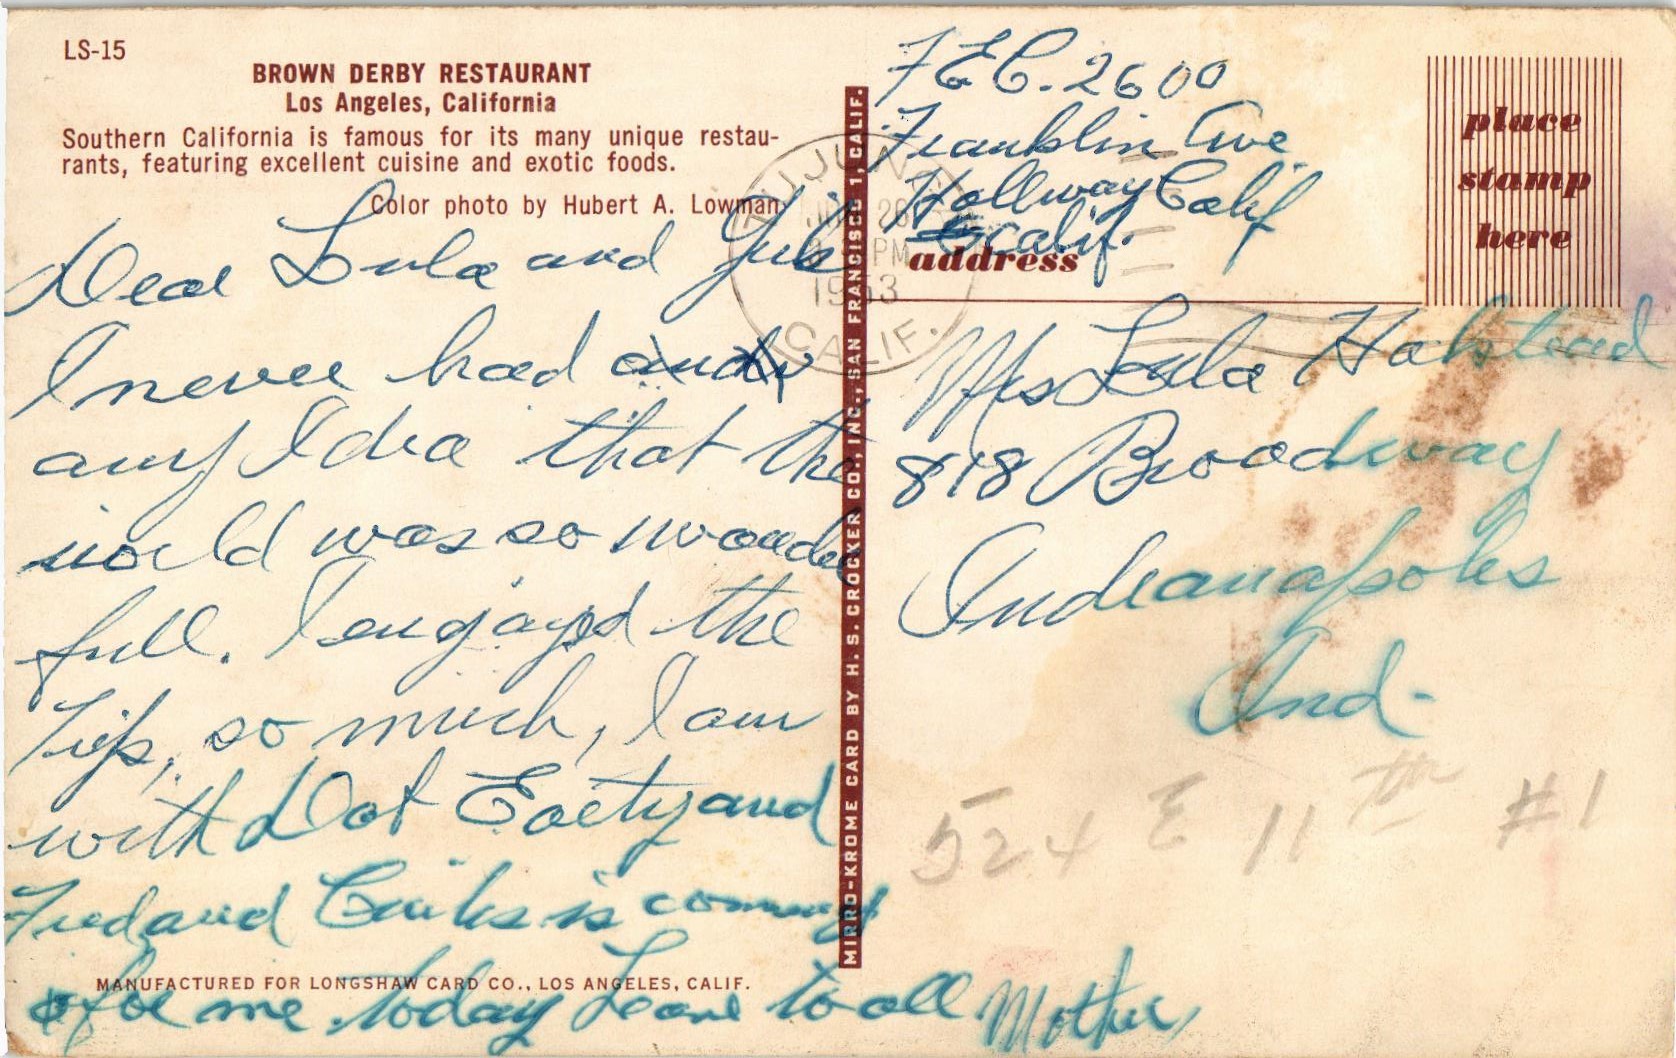 LS-15
BROWN DERBY RESTAURANT
Los Angeles, California
Southern California is famous for its many unique restau-
rants, featuring excellent cuisine and exotic foods.
Color photo by Hubert A. Lowman
Dear Lula and
I never had
any Idea that the
world was so wonder
full. I engoyed the
Tip, so much, I am
with Dot Everty and
Fred and is comming
for me today Love to all Mother
MANUFACTURED FOR LONGSHAW CARD CO., LOS ANGELES, CALIF.
MIRRO-KROME CARD BY H. S. CROCKER CO., INC., SAN FRANCISCO 1, CALIF.
TUJUNGA
26
PM
1953
CALIF.
F E C. 2600
Franklin Ave
Hollway Calif
Calif.
address
place
stamp
here
Mrs Lula Halstead
818 Broadway
Indianapolis
Ind-
524 E 11th #1